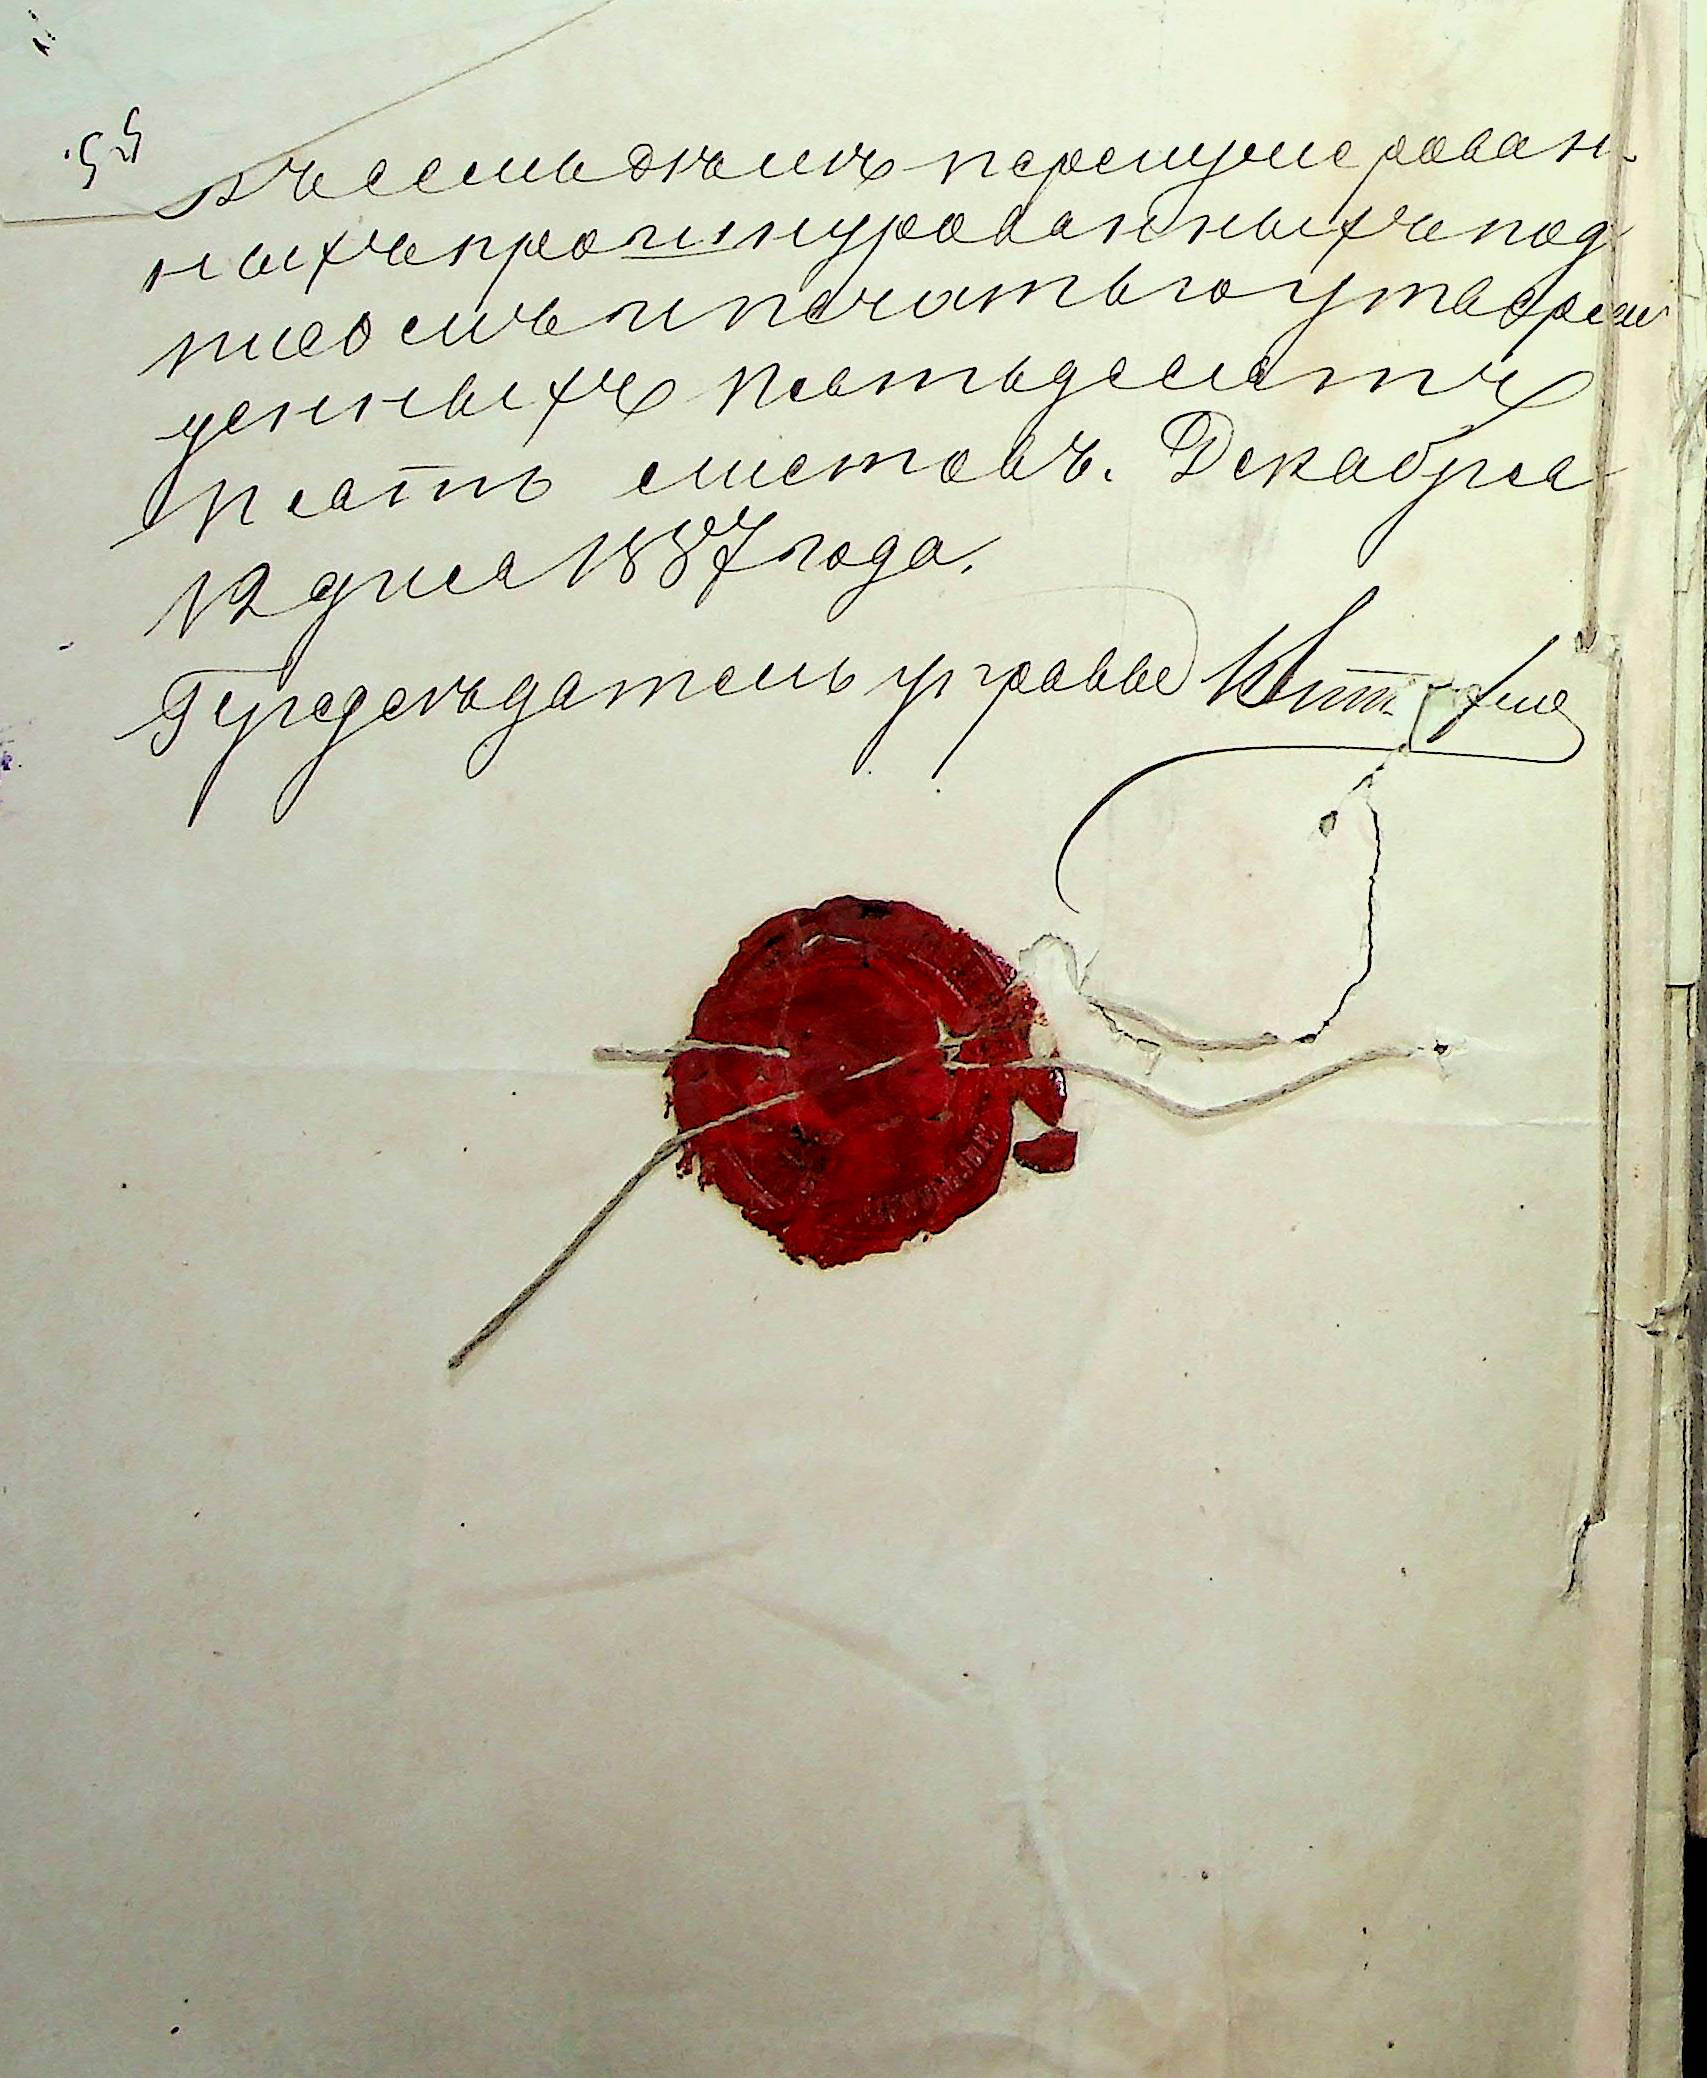 55
Въ семъ дѣлѣ перенумерован-
ныхъ прошнурованныхъ под
писомъ и печатью утверж
денныхъ пятьдесятъ
пять листовъ. Декабря
12 дня 1887 года.
Предсѣдатель управы